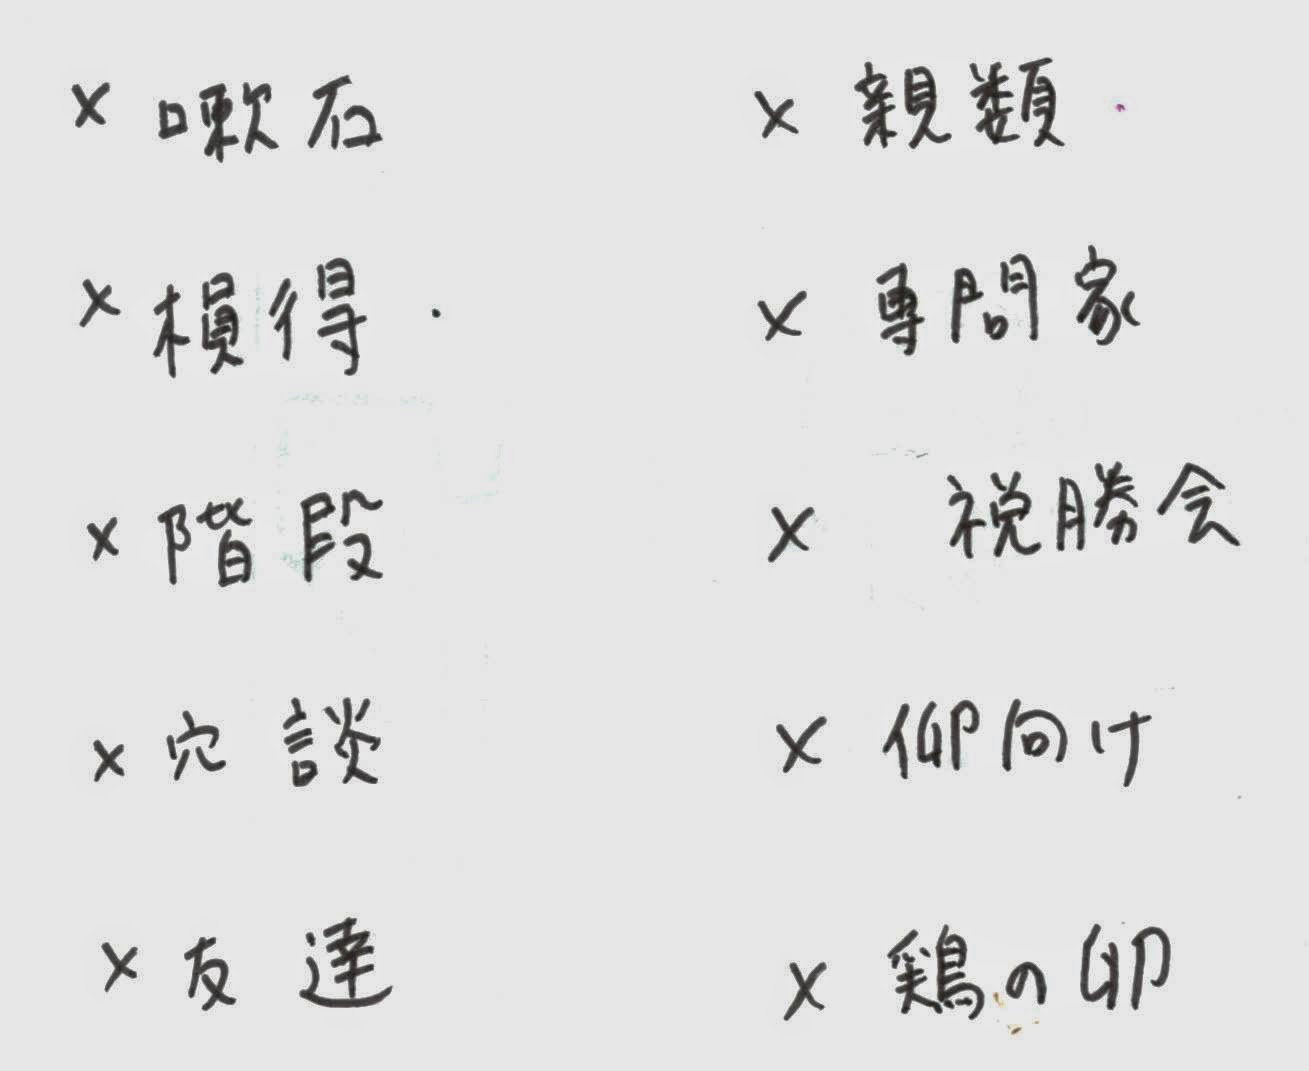 × 嗽石
× 損得
× 階段
× 穴談
× 友達
× 親類
× 専問家
× 祱勝会
× 仰向け
× 鶏の卯